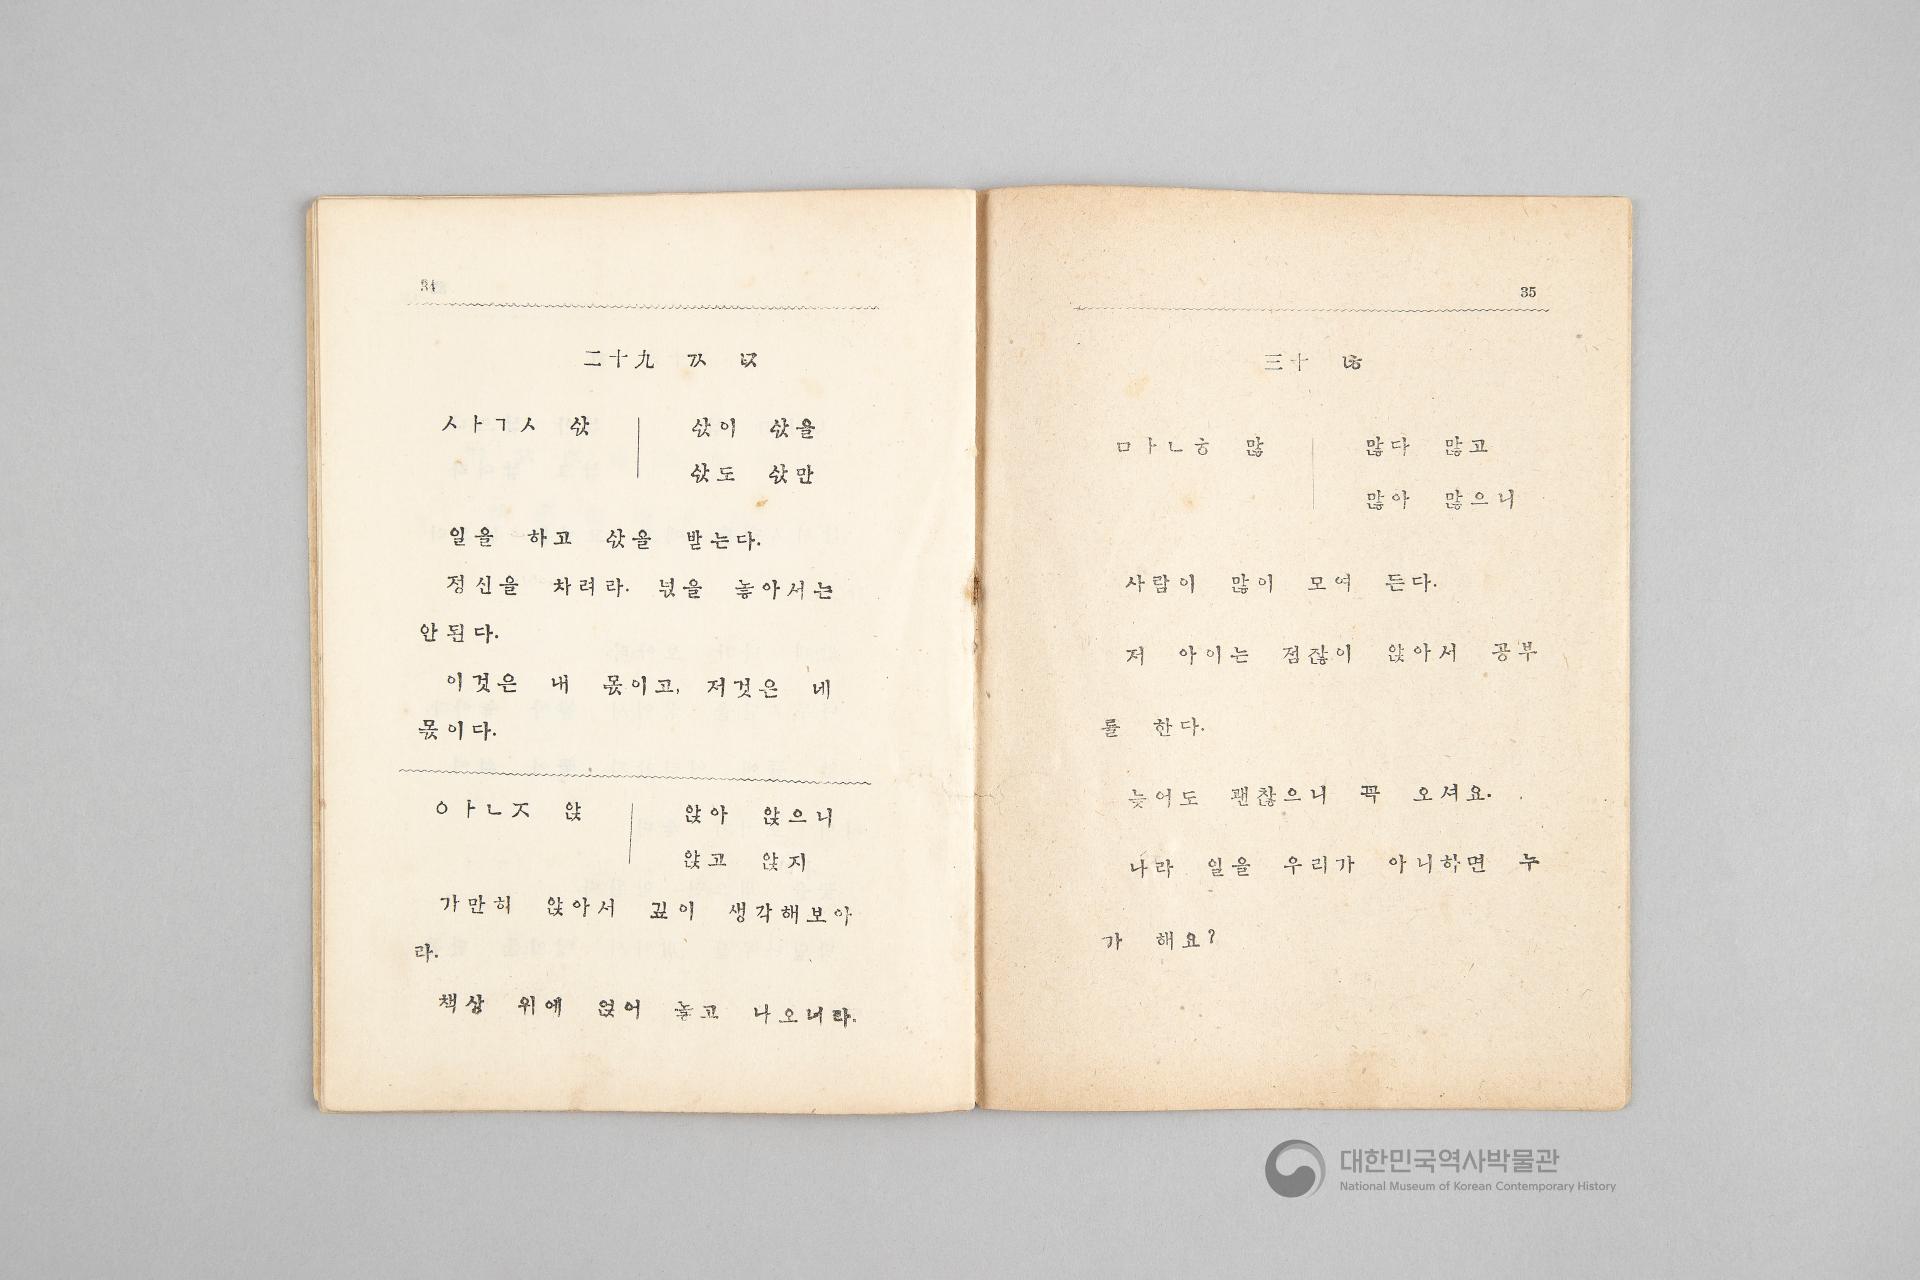 34
二十九 ㄳ ㄵ
ㅅㅏㄱㅅ 삯 삯이 삯을
삯도 삯만
일을 하고 삯을 받는다.
정신을 차려라. 넋을 놓아서는
안된다.
이것은 내 몫이고, 저것은 네
몫이다.
ㅇㅏㄴㅈ 앉 앉아 앉으니
앉고 앉지
가만히 앉아서 깊이 생각해보아
라.
책상 위에 얹어 놓고 나오너라.
35
三十 ㄶ
ㅁㅏㄴㅎ 많 많다 많고
많아 많으니
사람이 많이 모여 든다.
저 아이는 점잖이 앉아서 공부
를 한다.
늦어도 괜찮으니 꼭 오셔요.
나라 일을 우리가 아니하면 누
가 해요?
대한민국역사박물관
National Museum of Korean Contemporary History